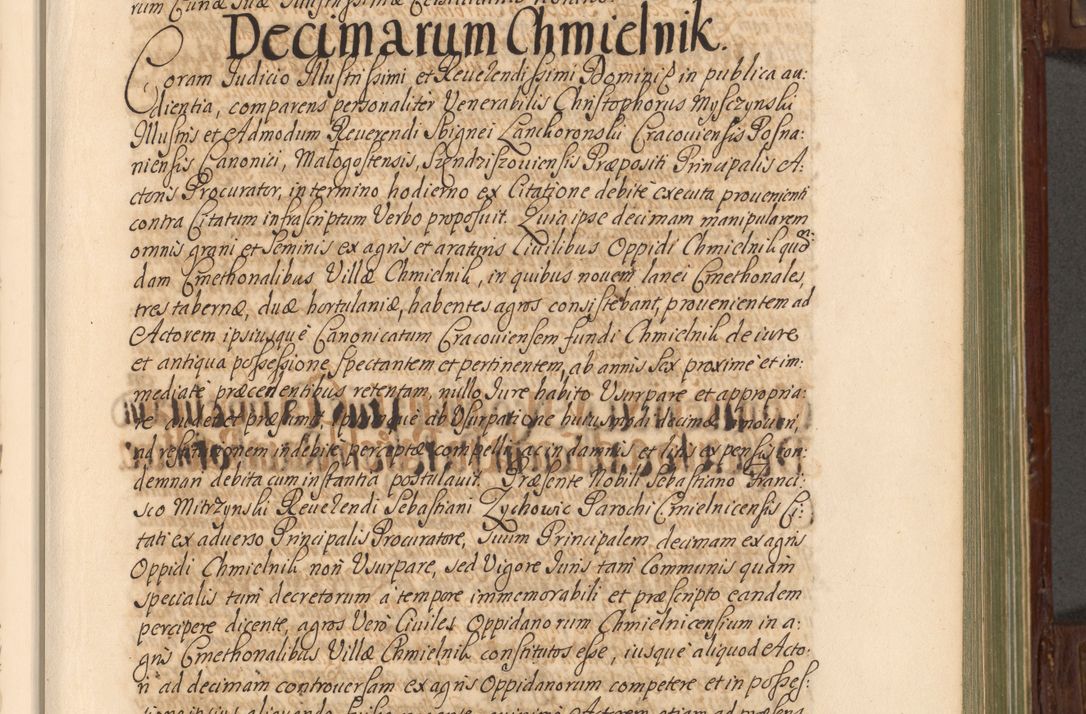 Decimarum Chmielnik.
Coram Judicio Illustrissimi et Reverendissimi Domini in publica au:
dientia, comparens personaliter Venerabilis Christophorus Mysczynski
Illustris et Admodum Reverendi Sbignei Lanckoronski Cracouiensis Posna:
niensis Canonici, Małogostensis, Szendziszouiensis Præpositi Principalis A:
ctoris Procurator, in termino hodierno ex Citatione debite executa prouenienti
contra Citatum infrascriptum Verbo proposuit. Quia ipse decimam manipularem
omnis grani et Seminis ex agris et araturis Ciuilibus Oppidi Chmielnik quon
dam Cmethonalibus Villæ Chmielnik, in quibus nouem lanei Cmethonales,
tres tabernæ, duæ hortulaniæ, habentes agros consistebant, prouenientem ad
Actorem ipsiusque Canonicatum Cracouiensem fundi Chmielnik de iure
et antiqua possessione spectantem et pertinentem, ab annis sex proxime et im:
mediate præcedentibus retentam, nullo Jure habito Usurpare et appropria:
re audet et præsumit ab Usurpatione huiusmodi decimæ
ad restitutionem indebite perceptæ compelli, ac in damnis et litis expensis con:
demnari debita cum instantia postulauit. Præsente Nobili Sebastiano Franci:
sco Mitrzynski Reverendi Sebastiani Zychowic Parochi Cmielnicensis Ci:
tati ex aduerso Principalis Procuratore, Suum Principalem decimam ex agris
Oppidi Chmielnik non Usurpare, sed Vigore Juris tam Communis quam
specialis tum decretorum a tempore immemorabili et præscripto eandem
percipere dicente, agros Vero Ciuiles Oppidanorum Chmielnicensium in a:
gris Cmethonalibus Villæ Chmielnik constitutos esse, iusque aliquod Acto:
ri ad decimam controuersam ex agris Oppidanorum competere et in posses: